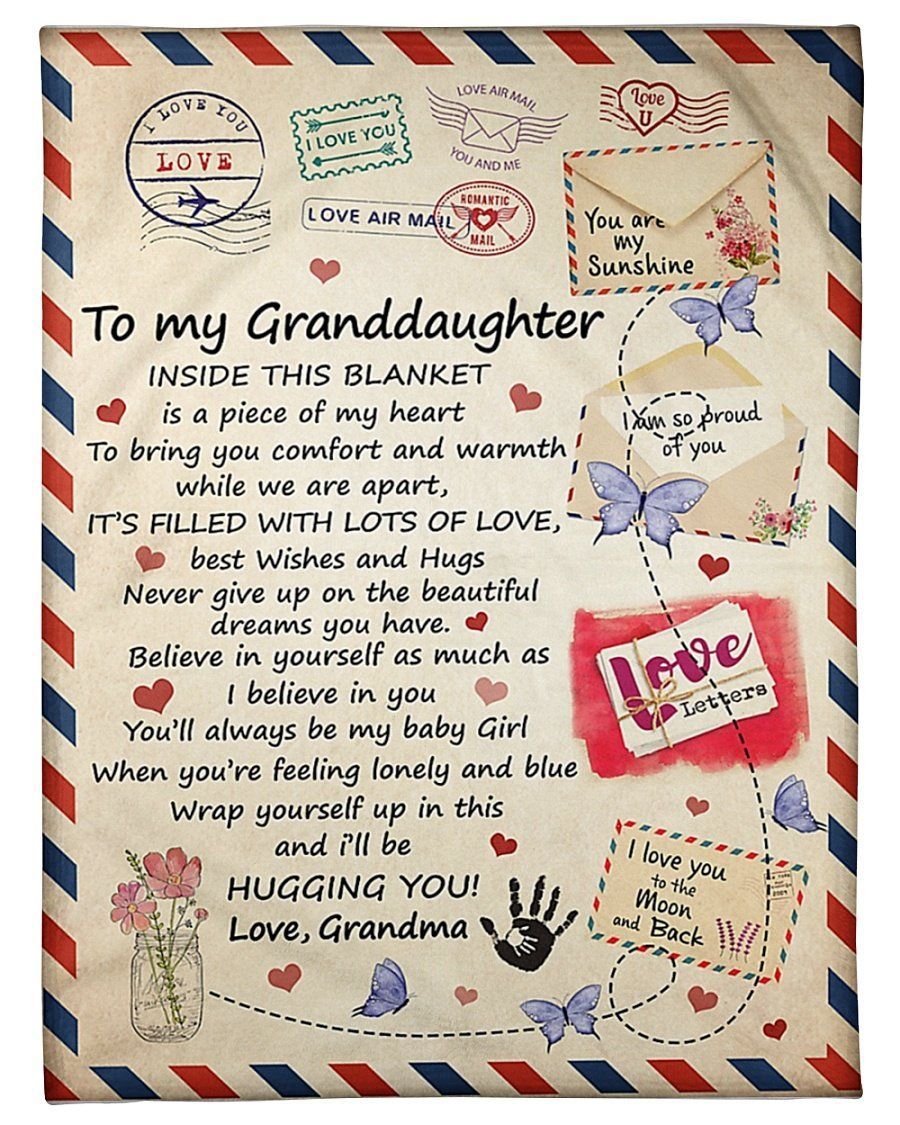 I LOVE YOU
LOVE
I LOVE YOU
LOVE AIR MAIL
YOU AND ME
Love
U
LOVE AIR MAIL
ROMANTIC
MAIL
You are
my
Sunshine
To my Granddaughter
INSIDE THIS BLANKET
is a piece of my heart
To bring you comfort and warmth
while we are apart,
IT'S FILLED WITH LOTS OF LOVE,
best Wishes and Hugs
Never give up on the beautiful
dreams you have.
Believe in yourself as much as
I believe in you
You'll always be my baby Girl
When you're feeling lonely and blue
Wrap yourself up in this
and i'll be
HUGGING YOU!
Love, Grandma
I am so proud
of you
Love
Letters
I love you
to the
Moon
and Back